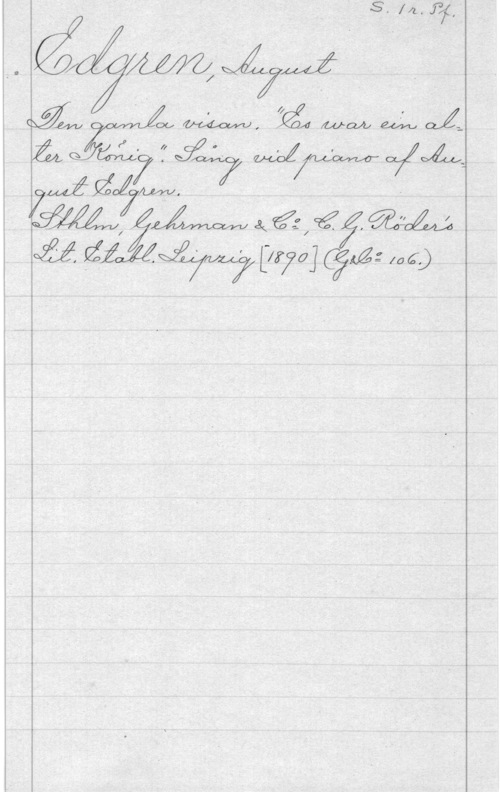 S. 1 r. Pf.
Edgren, August
Den gamla visan. "Es war ein al=
ter König". Sång vid piano af Au=
gust Edgren.
Sthlm, Gehrman & Co:, C. G. Röder's
Lit. Etabl. Leipzig [1890] (G&Co: 106.)